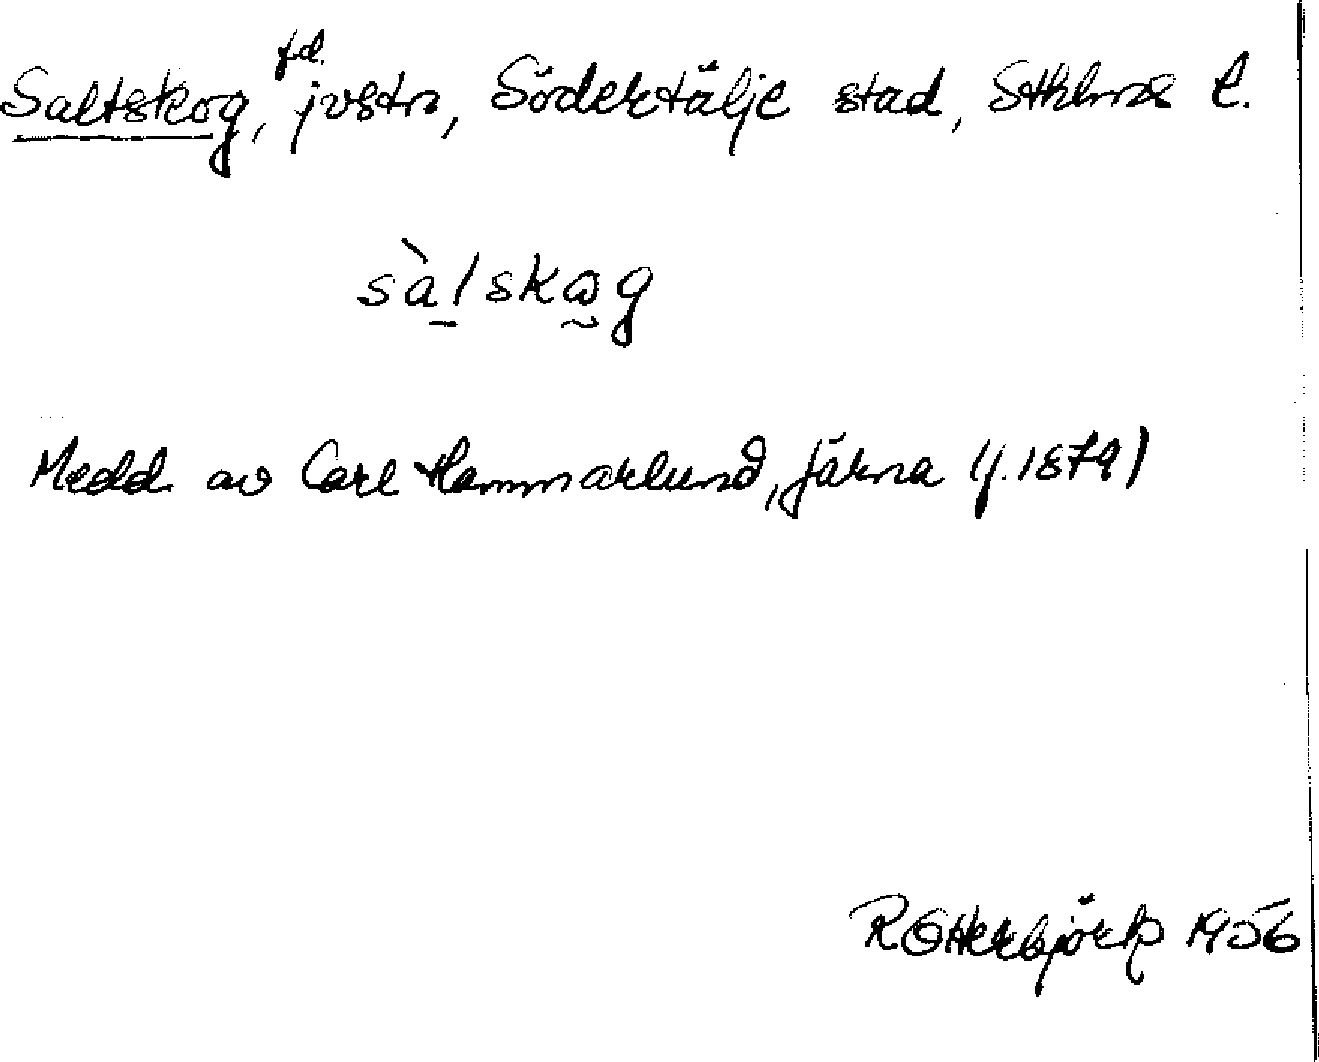 Saltskog, fd. jvstn, Södertälje stad, Sthlms l.
sàlskog
Medd. av Carl Hammarlund, Järna (f. 1879)
R Otterbjörk 1956